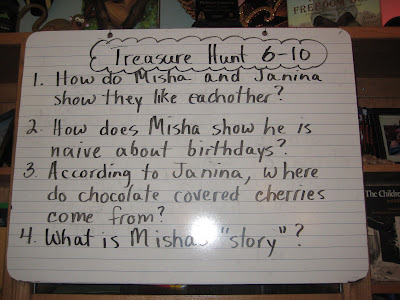 FREEDOM
Treasure Hunt 6-10
1. How do Misha and Janina
show they like eachother?
2. How does Misha show he is
naive about birthdays?
3. According to Janina, where
do chocolate covered cherries
come from?
4. What is Misha's "story"?
The Children